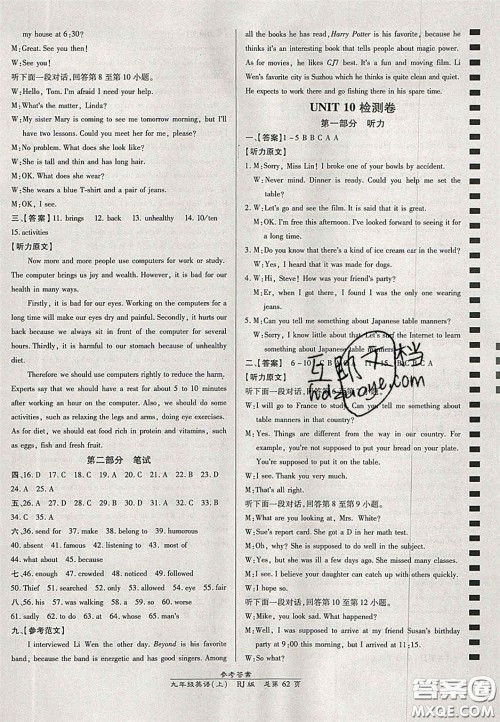 my house at 6:30?
M: Great. See you then!
W: See you!
听下面一段对话,回答第 8 至第 10 小题。
W: Hello, Tom. I'm afraid I need your help.
M: What's the matter, Linda?
W: My sister Mary is coming to see me tomorrow morning, but I'll
have a meeting then. Could you meet her at the airport?
M: OK. What does she look like?
W: She is tall and thin and has long hair.
M: OK. What does she wear?
W: She wears a blue T-shirt and a pair of jeans.
M: OK, I see.
三、【答案】11. brings 12. back 13. unhealthy 14. 10/ten
15. activities
【听力原文】
Now more and more people use computers for work or study.
The computer brings us joy and wealth. However, it is not good for our
health in many ways.
Firstly, it is bad for our eyes. Working on computers for a long
time will hurt our eyesight. Secondly, sitting in front of a computer will
hurt our back because we always sit in the same position for a long time.
Thirdly, it influences our diet. If we work on computers for a long time,
we will not feel like eating anything, and this causes an unhealthy diet.
Therefore we should use computers regularly to reduce the harm.
Experts say that we should have a rest for about 5 to 10 minutes
after working an hour on the computer. Also, we should do some
activities, such as relaxing the legs and arms, doing eye exercises.
As for diet, we should eat food rich in protein and vitamins, such
as eggs, fish and fresh fruit.
第二部分 笔试
四、16. D 17. D 18. C 19. A 20. C 21. B 22. A 23. D
24. A 25. A
五、26. D 27. C 28. A 29. A 30. D 31. C 32. A 33. C
34. A 35. D
六、36. send 37. make 38. for 39. follow 40. most of
41. absent 42. famous 43. talent 44. humorous
45. knowledge
七、46. enough 47. easy 48. because 49. through
50. Thief 51. searched 52. sitting 53. did 54. on 55. talking
八、56. A 57. B 58. D 59. D 60. B 61. A 62. D 63. B
64. C 65. A
九、【参考范文】
I interviewed Li Wen the other day. Beyond is his favorite
band, because the band is energetic and has good singers. Among
all the books he has read, Harry Potter is his favorite, because he
thinks it's an interesting book that tells students about magic power.
As for movies, he likes CJ7. It's a fun and moving film. Li
Wen's favorite city is Suzhou which he thinks is quite clean and quiet.
He expects to work there and go fishing there in his spare time.
UNIT 10 检测卷
第一部分 听力
一、【答案】1-5 BBCAA
【听力原文】
1. M: Sorry, Miss Lin! I broke one of your bowls by accident.
W: Never mind. Dinner is ready. Could you help me set the
table?
2. W: Let's go swimming this afternoon, OK?
M: OK. I'm free this afternoon. I've looked forward to seeing it
for a long time.
3. M: Do you know that there's a kind of ice cream car in the world?
W: Yes, I saw it in the newspaper yesterday.
4. W: Hi, Steve! How was your friend's party?
M: Exciting, when I found I was the only one wearing
jeans.
5. M: Can you tell me something about Japanese table manners?
W: Sorry, I know little about that. Let's surf the Internet to learn
something about Japanese table manners.
二、【答案】6-10 BCCAB 11. B 12. C
【听力原文】
W: I will go to France to study. Can you tell me something about
table manners in that country?
M: Yes.
W: Things are different from the way in our country. For
example, you're not supposed to put your bread on your plate.
W: You mean we should put it on the table?
M: Yes.
W: That's really strange.
听下面一段对话,回答第 8 至第 9 小题。
M: What are you worrying about, Mrs. White?
W: My daughter, Sue. She got a D in her math test.
M: Oh. She is supposed to do well in the subject.
W: Yes. And she is disappointed with herself.
M: I believe your daughter can catch up with others quickly.
W: I hope so.
听下面一段对话,回答第 10 至第 12 小题。
M: Mary, we are invited to my friend Susan's birthday
party at 9:00 this morning. It's 8:40 now. Hurry up!
W: All right. Just a minute.
参考答案
九年级英语(上) RJ版 总第 62 页
互助文档
hwzuoye.com
答案圈
MXQE.COM